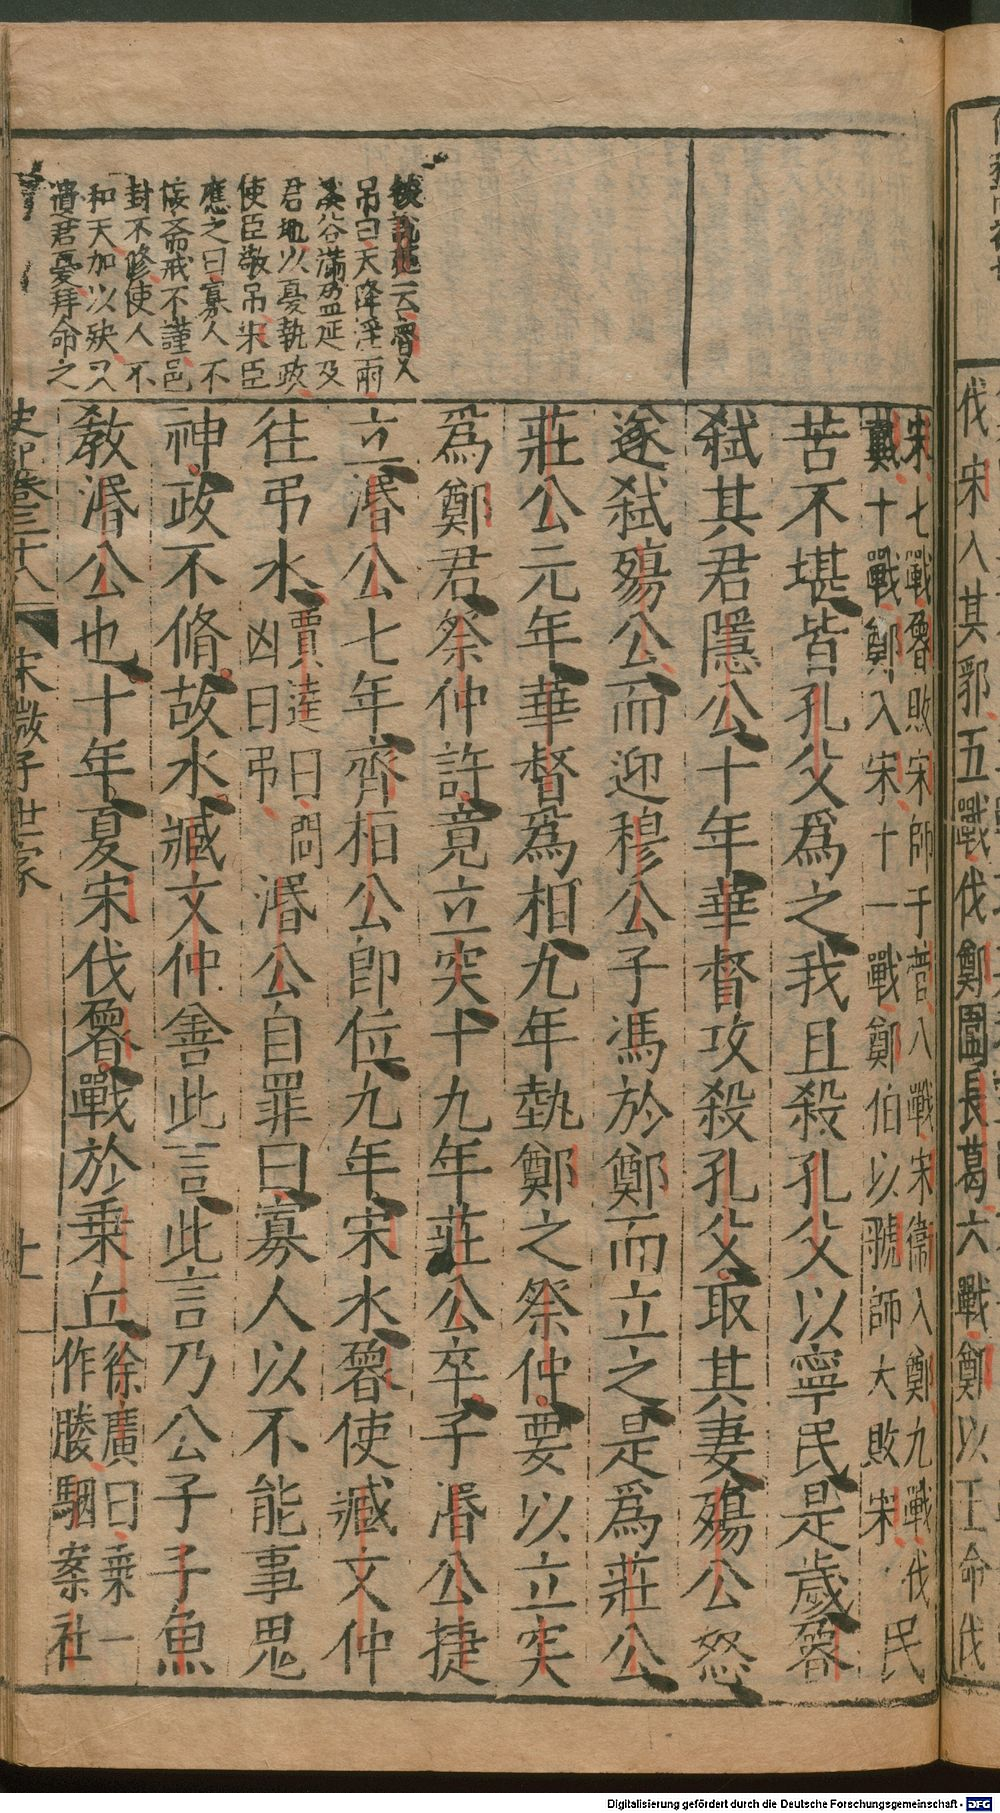 伐宋入其郛五戰伐鄭圍長葛六戰鄭以王命伐
宋七戰魯敗宋師于菅八戰宋衞入鄭九戰伐
戴十戰鄭入宋十一戰鄭伯以虢師大敗宋
民
苦不堪皆孔父爲之我且殺孔父以寧民是歲魯
弑其君隱公十年華督攻殺孔父取其妻殤公怒
遂弑殤公而迎穆公子馮於鄭而立之是爲莊公
莊公元年華督爲相九年執鄭之祭仲要以立突
爲鄭君祭仲許竟立突十九年莊公卒子湣公捷
立湣公七年齊栢公卽位九年宋水魯使臧文仲
往弔水
賈逵曰問
凶曰弔
湣公自罪曰寡人以不能事鬼
神政不脩故水臧文仲善此言此言乃公子子魚
教湣公也十年夏宋伐魯戰於乗丘
徐廣曰乗一
作媵駰案社
云魯人
吊曰天降淫雨
溪谷滿盈延及
君地以憂執政
使臣敬吊宋臣
應之曰寡人不
佞斋戒不謹邑
封不修使人不
和天加以殃又
遺君憂拜命之
史卩卷三十八
宋微子世家
十一
Digitalisierung gefördert durch die Deutsche Forschungsgemeinschaft - DFG